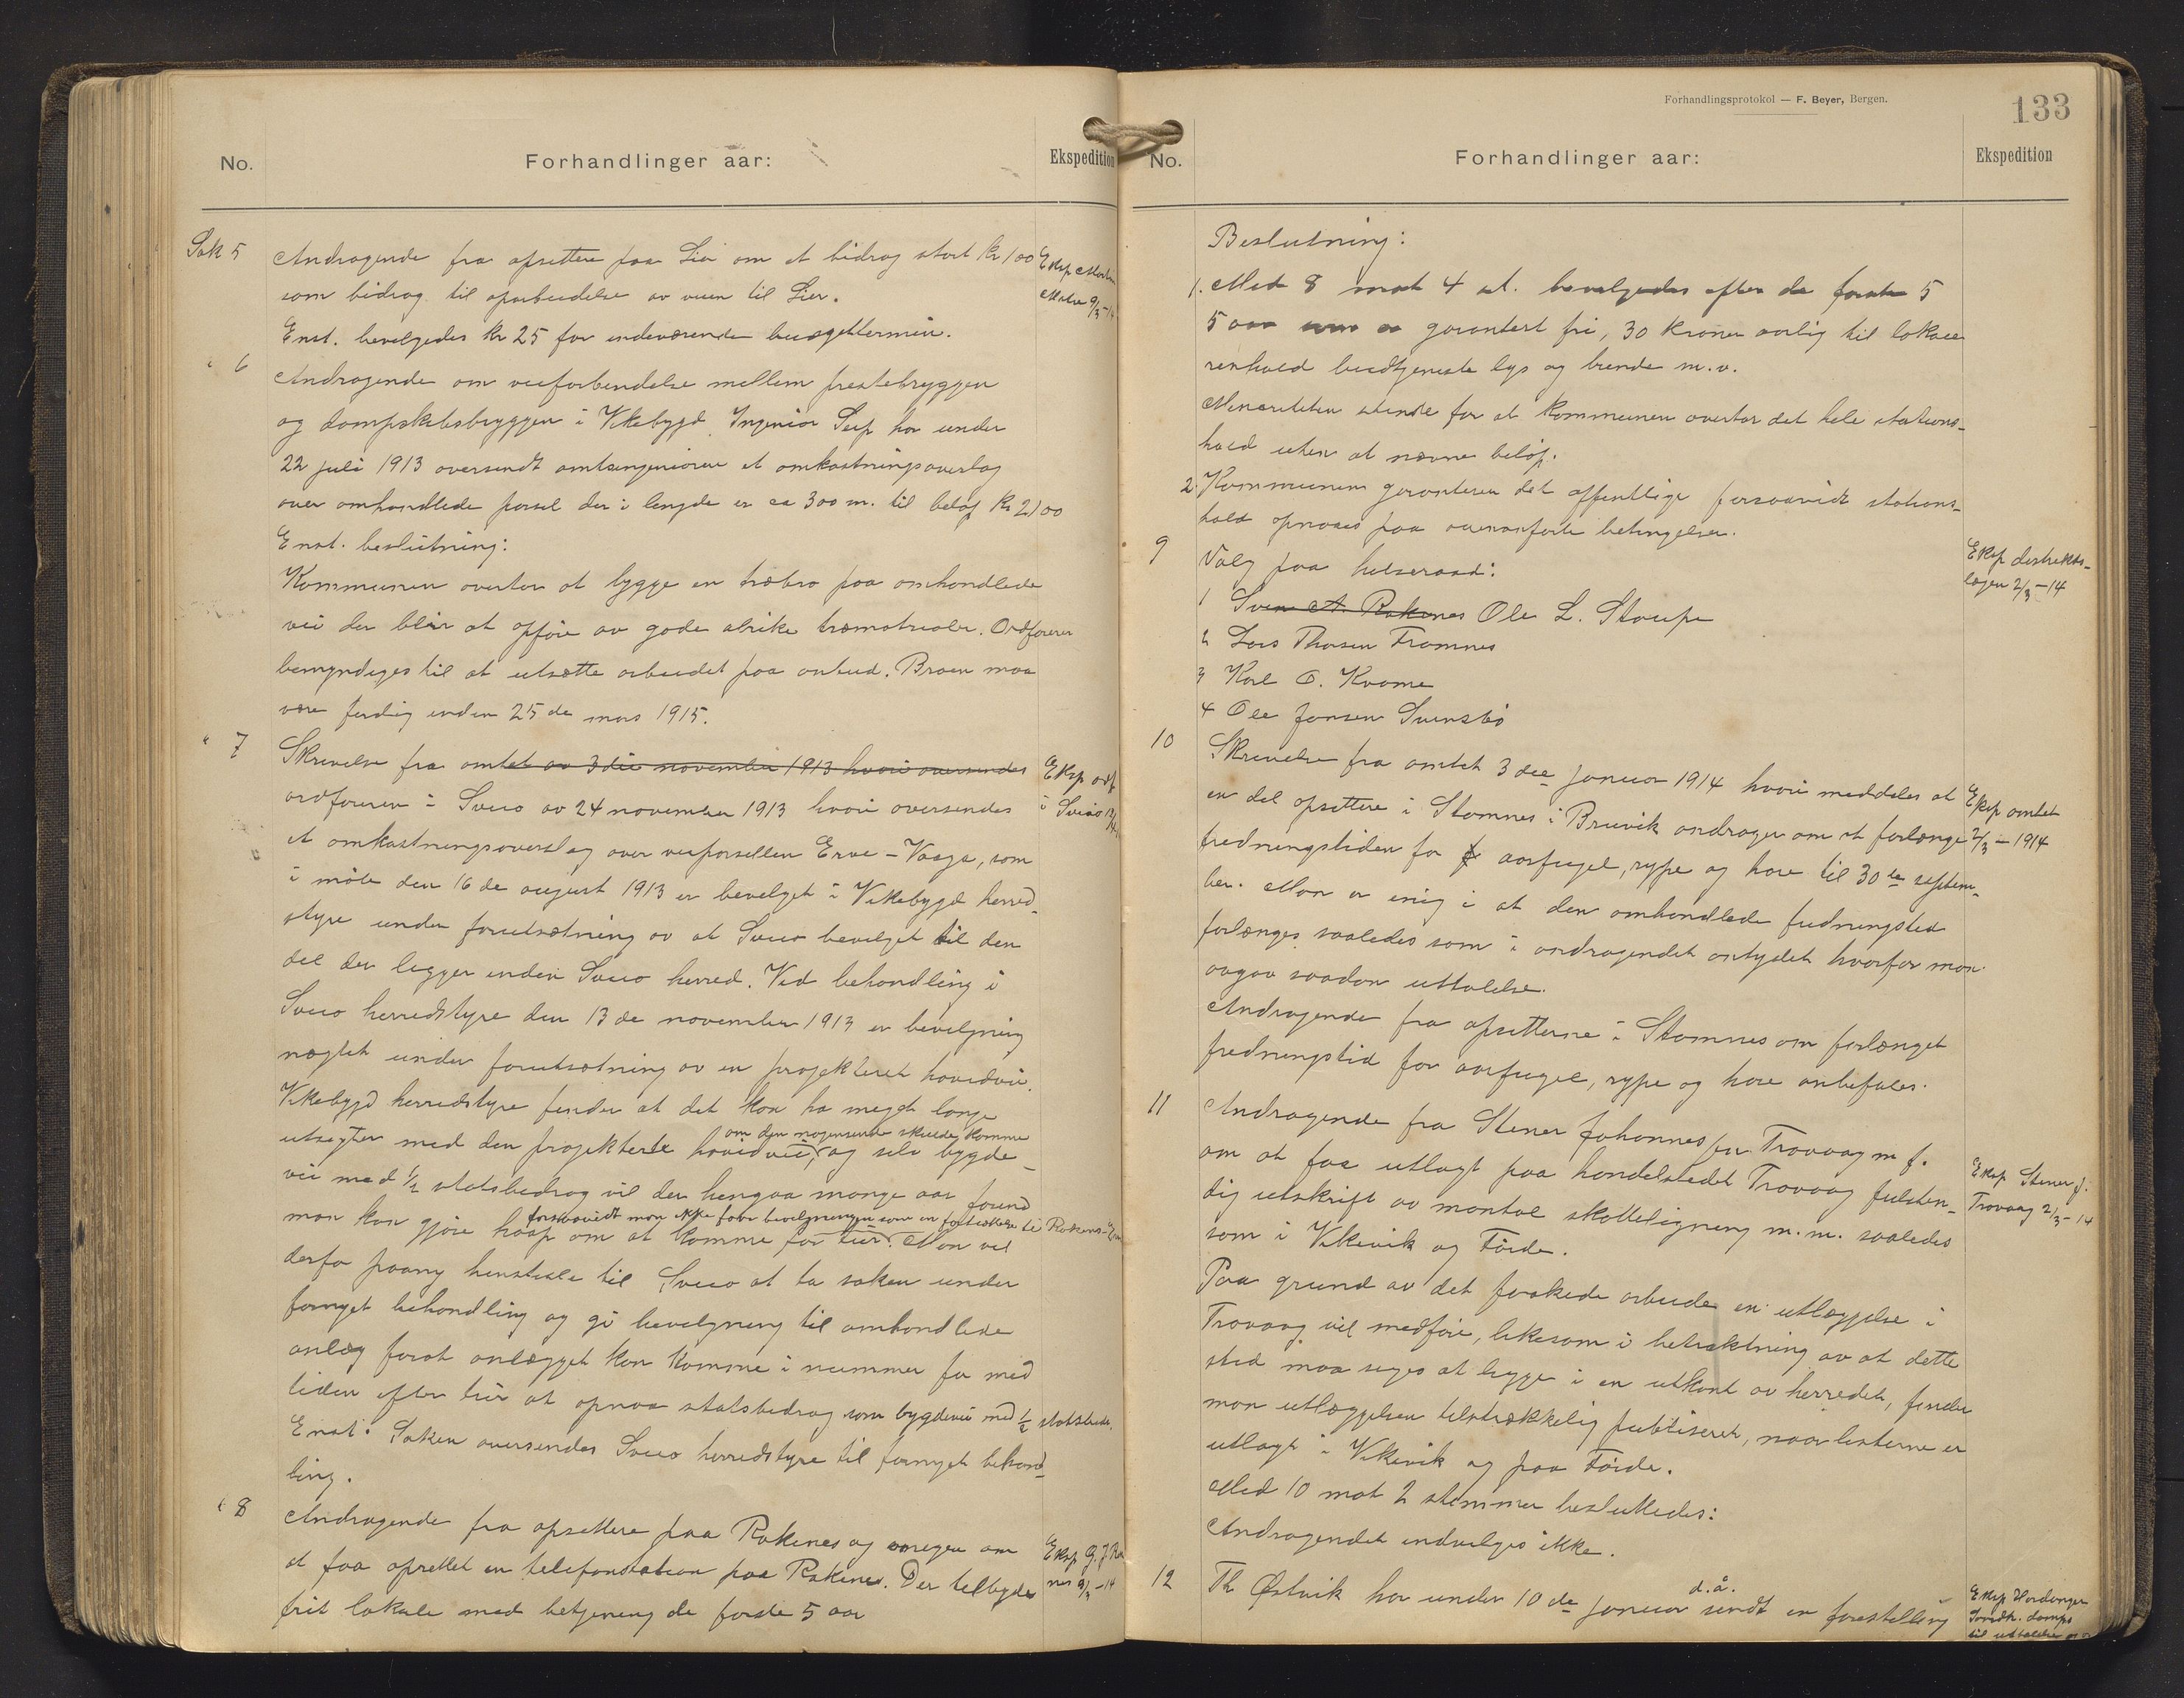 No.
Forhandlinger aar:
Ekspedition
Sak 5
Andragende fra opsittere paa Lier om et bidrag stort kr 100
som bidrag til oparbeidelse av veien til Lier.
Enst. bevilgedes kr 25 for indeværende budgettermin.
" 6
Andragende om veiforbindelse mellem prestebryggen
og dampskibsbryggen i Vikebygd. Ingeniør Seip har under
22 juli 1913 oversendt amtsingeniøren et omkostningsoverlag
over omhandlede parsel der i lengde er ca 300 m. til beløp kr 2100
Enst. beslutning:
Kommunen overtar at bygge en træbro paa omhandlede
vei der blir at opføre av gode alrike træmatrialer. Ordføreren
bemyndiges til at utsætte arbeidet paa anbud. Broen maa
være færdig inden 25 de mars 1915.
" 7
Skrivelse fra amtet av 3die november 1913 hvori oversendes
ordføreren i Sveio av 24 november 1913 hvori oversendes
et omkostningsoverslag over veiparsellen Erve - Vaage, som
i møte den 16 de august 1913 er bevilget i Vikebygd herred-
styre under forutsætning av at Sveio bevilget til den
del der ligger inden Sveio herred. Ved behandling i
Sveio herredstyre den 13 de november 1913 er bevilgning
nægtet under forutsætning av en projekteret hovedvei.
Vikebygd herredstyre finder at det kan ha meget lange
om den nogensinde skulde komme
utsigter med den projekterte hovedvei, og selv bygde-
vei med 1/2 statsbidrag vil der hengaa mange aar forend
forsaavidt man ikke faar bevilgningen som en fortsættelse til Rakens
man kan gjøre haap om at komme for tur. Man vil
derfor paany henstille til Sveio at ta saken under
fornyet behandling og gi bevilgning til omhandlede
anlæg forat anlægget kan komme i nummer for med
tiden efter tur at opnaa statsbidrag som bygdevei med 1/2 statsbidr.
Enst: Saken oversendes Sveio herredstyre til fornyet behand-
ling.
" 8
Andragende fra opsittere paa Rakenes og omegn om
at faa oprettet en telefonstation paa Rakenes. Der tilbydes
frit lokale med betjening de første 5 aar
Eksp ordf
i Sveio
Eksp G. J. Rake
nes 2/3-14
Forhandlingsprotokol — F. Beyer, Bergen.
133
No.
Forhandlinger aar:
Ekspedition
Beslutning:
1. Med 8 mot 4 st. bevilgedes efter de første 5
5 aar garantert fri, 30 kroner aarlig til lokale
renhold budtjeneste lys og brende m.v.
Minoriteten stemte for at kommunen overtar det hele stations-
hold uten at nævne beløp.
2. Kommunen garanterer det offentlige forsaavidt stations-
hold opnaaes paa ovenanførte betingelser.
9
Valg paa helseraad:
1 Sven A. Rakenes Ole L. Staupe
2 Lars Thorsen Framnes
3 Karl O. Kvame
4 Ole Jansen Svensbø
Eksp distrikts-
lægen 2/3-14
10
Skrivelse fra amtet 3 dee januar 1914 hvori meddeles at
en del opsittere i Stamnes i Bruvik andrager om at forlænge
fredningstiden for aarfugel, rype og hare til 30 te septem-
ber. Man er enig i at den omhandlede fredningstid
forlænges saaledes som i andragendet antydet hvorfor man
avgav saadan uttalelse.
Andragende fra opsitterne i Stamnes om forlænget
fredningstid for aarfugel, rype og hare anbefales.
Eksp amtet
2/3-1914
11
Andragende fra Steiner Johannesen Trovaag m f.
om at faa utlagt paa handelstedet Trovaag fulsten-
dig utskrift av mantal skatteligning m.m. saaledes
som i Vikevik og Førde.
Paa grund av det forøkede arbeide en utlæggelse i
Trovaag vil medføre, likesom i betraktning av at dette
sted maa siges at ligge i en utkant av herredet, finder
man utlæggelsen tilstrækkelig publiseret, naar listerne er
utlagt i Vikevik og paa Førde.
Med 10 mot 2 stemmer besluttedes:
Andragendet indvilges ikke.
Eksp Steiner J.
Trovaag 2/3-14
12
d.å.
Th Østvik har under 10 de januar sendt en forestilling
Eksp Hardanger
Søndh. damps
til uttalelse